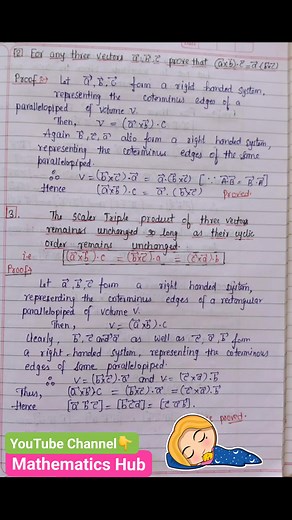 [2] For any three vectors a⃗, b⃗, c⃗ prove that (a⃗×b⃗)·c⃗ = a⃗·(b⃗×c⃗)
Proof:- Let a⃗, b⃗, c⃗ form a right handed system,
representing the coterminus edges of a
parallelopiped of volume V.
Then, V = (a⃗×b⃗)·c
Again b⃗, c⃗, a⃗ also form a right handed system,
representing the coterminus edges of the same
parallelopiped.
∴ V = (b⃗×c⃗)·a⃗ = a⃗·(b⃗×c⃗) [∵ A⃗·B⃗ = B⃗·A⃗]
Hence (a⃗×b⃗)·c = a⃗·(b⃗×c⃗) Proved.
[3]. The Scaler Triple product of three vectors
remaines unchanged so long as their cyclic
order remains unchanged.
i.e [(a⃗×b⃗)·c = (b⃗×c⃗)·a⃗ = (c⃗×a⃗)·b⃗]
Proof:
Let a⃗, b⃗, c⃗ form a right handed system,
representing the coterminus edges of a rectangular
parallelopiped of volume V.
Then, V = (a⃗×b⃗)·c
Clearly, b⃗, c⃗ and a⃗ as well as c⃗, a⃗, b⃗ form
a right-handed system, representing the coterminous
edges of same parallelopiped.
∴ V = (b⃗×c⃗)·a⃗ and V = (c⃗×a⃗)·b⃗
Thus, (a⃗×b⃗)·c = (b⃗×c⃗)·a⃗ = (c⃗×a⃗)·b⃗
Hence [a⃗ b⃗ c⃗] = [b⃗ c⃗ a⃗] = [c⃗ a⃗ b⃗].
proved.
YouTube Channel👇
Mathematics Hub